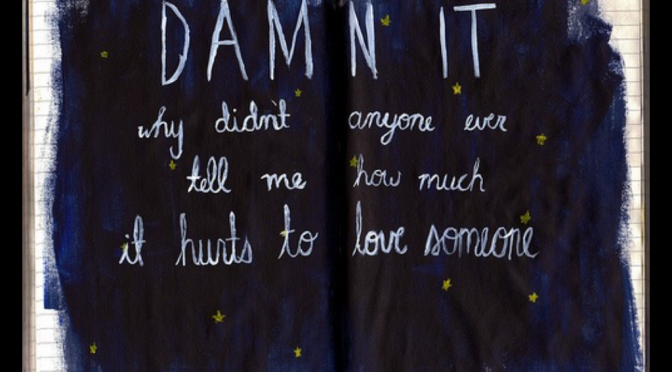 DAMN IT
why didn't anyone ever
tell me how much
it hurts to love someone